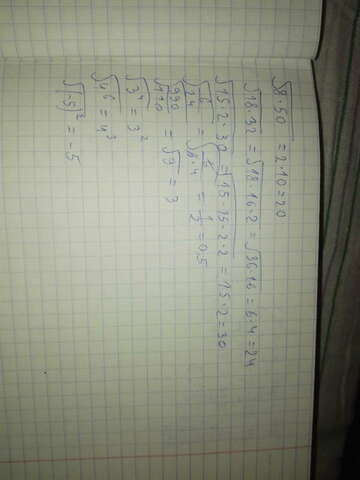 √8·50 = 2·10=20
√18·32 = √18·16·2 = √36·16 = 6·4 = 24
√15·2·30 = √15·15·2·2 = 15·2=30
√6/24 = √6/6·4 = 1/2 = 0,5
√990/110 = √9 = 3
√3⁴ = 3²
√4⁶ = 4³